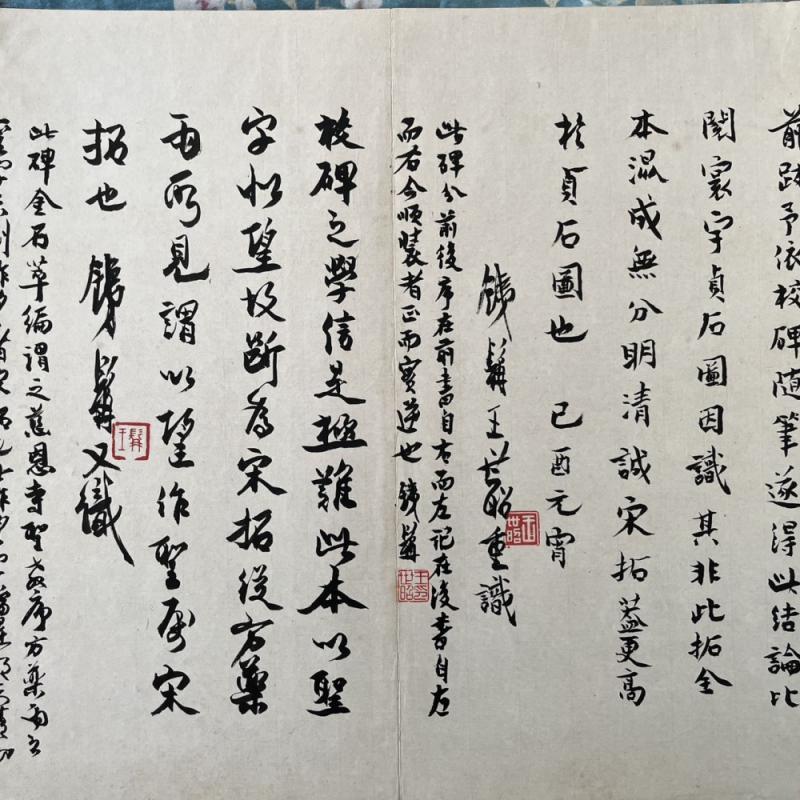 前跋予依校碑隨筆遂得此結論比
閱寰宇貞石圖因識其非此拓全
本混成無分明清誠宋拓蓋更高
於貞石圖也 己酉元宵
鐵髯王世昭重識
王世昭
此碑分前後序在前書自右而左記在後書自左
而右今順裝者正而實逆也 鐵髯
王世昭
校碑之學信是極難此本以聖
字似望故斷為宋拓從方藥
雨所見謂以望作聖屬宋
拓也 鐵髯又識
王髯
此碑金石萃編謂之慈恩寺聖教序方藥雨云